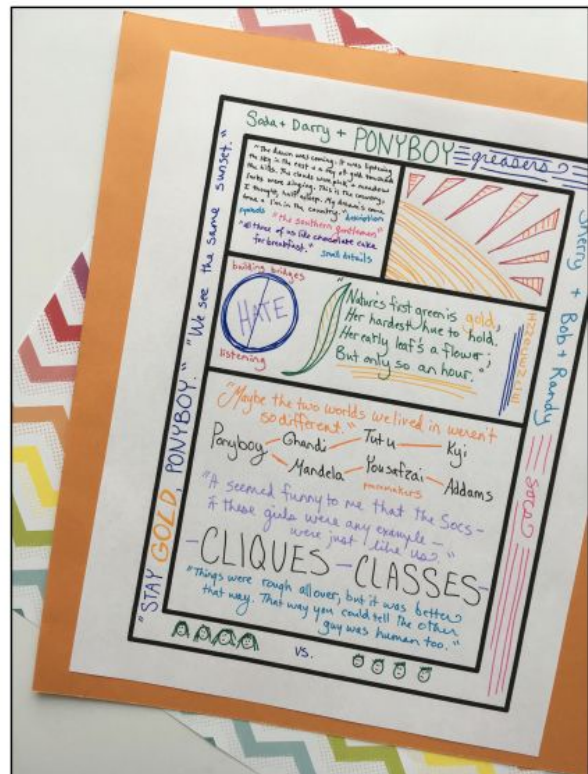 Soda + Darry + PONYBOY
greasers
"The dawn was coming. It was lightening
the sky in the east + a ray of gold touched
the hills. The clouds were pink + meadow
larks were singing. This is the country,
I thought, half asleep. My dream's come
true + I'm in the country." description
symbols "the southern gentlemen"
"All three of us like chocolate cake
for breakfast." small details
Cherry + Bob + Randy
socs
building bridges
HATE
listening
"Nature's first green is gold,
Her hardest hue to hold.
Her early leaf's a flower;
But only so an hour."
"Maybe the two worlds we lived in weren't
so different."
Ponyboy Ghandi Tutu Kyi
Mandela Yousafzai Addams
peacemakers
seemed funny to me that the Socs -
if these girls were any example -
were just like us."
- CLIQUES - CLASSES -
"Things were rough all over, but it was better
that way. That way you could tell the other
guy was human too."
"STAY GOLD, PONYBOY." "We see the same sunset."
vs.